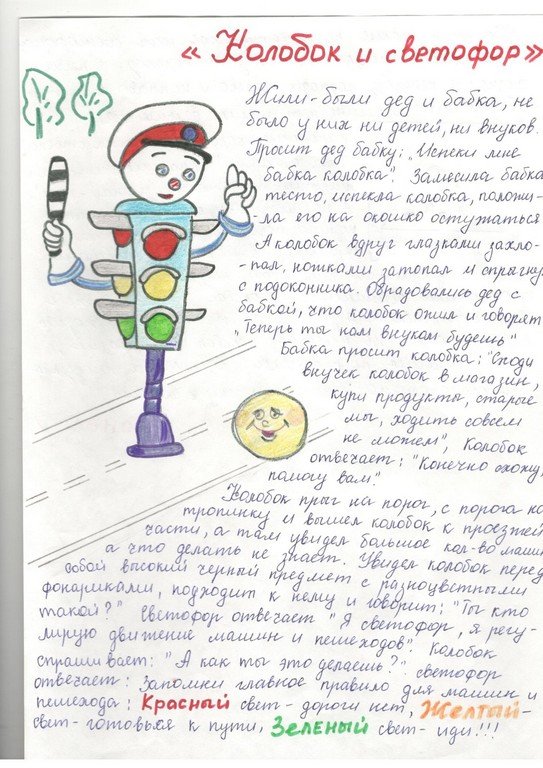 « Колобок и светофор»
Жили-были дед и бабка, не
было у них ни детей, ни внуков.
Просит дед бабку: „Испеки мне
бабка колобка". Замесила бабка
тесто, испекла колобка, положи-
-ла его на окошко остужаться
А колобок вдруг глазками захло-
-пал, ножками затопал и спрыгнул
с подоконника. Обрадовались дед с
бабкой, что колобок ожил и говорят
„Теперь ты нам внуком будешь"
Бабка просит колобка: "Сходи
внучек колобок в магазин,
купи продукты, старые
мы, ходить совсем
не можем", Колобок
отвечает: "Конечно схожу,
помогу вам."
Колобок прыг на порог, с порога на
тропинку и вышел колобок к проезжей
части, а там увидел большое кол-во машин
а что делать не знает. Увидел колобок перед
собой высокий черный предмет с разноцветными
фонариками, подходит к нему и говорит: "Ты кто
такой?" Светофор отвечает "Я светофор, я регу-
лирую движение машин и пешеходов". Колобок
спрашивает: "А как ты это делаешь?" светофор
отвечает: Запомни главное правило для машин и
пешехода: Красный свет - дороги нет, Желтый -
свет - готовься к пути, Зеленый свет - иди!!!